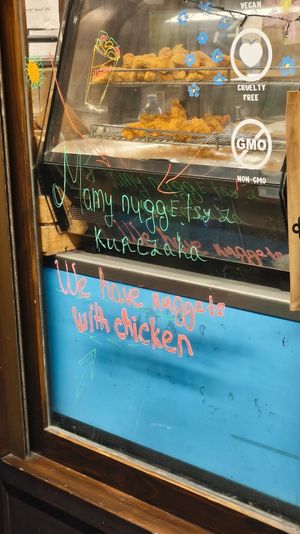 VEGAN
CRUELTY
FREE
GMO
NON-GMO
Mamy nuggetsy z
kurczaka
We have nuggets
with chicken